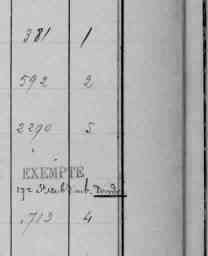 381 1
592 2
2290 5
EXEMPTE
713 4